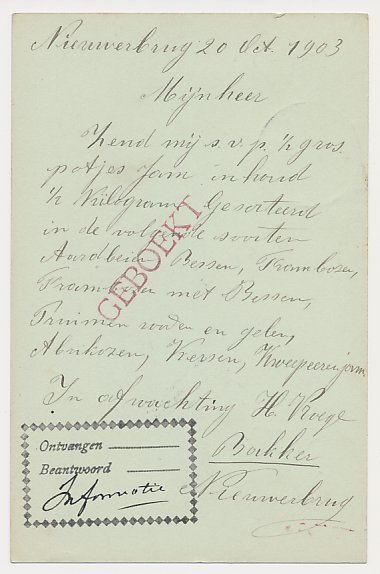 Nieuwerbrug 20 Oct. 1903
Mijnheer
Zend mij s.v.p. ½ gros
potjes Jam inhoud
½ Kilogram Gesorteerd
in de volgende soorten
Aardbeien, Bessen, Frambozen,
Frambozen met Bessen,
Pruimen rooden en gelen,
Abrikozen, Kersen, Kweepeerenjam
In afwachting H. Kroege
Bakker
Nieuwerbrug
GEBOEKT
Ontvangen
Beantwoord
Informatie